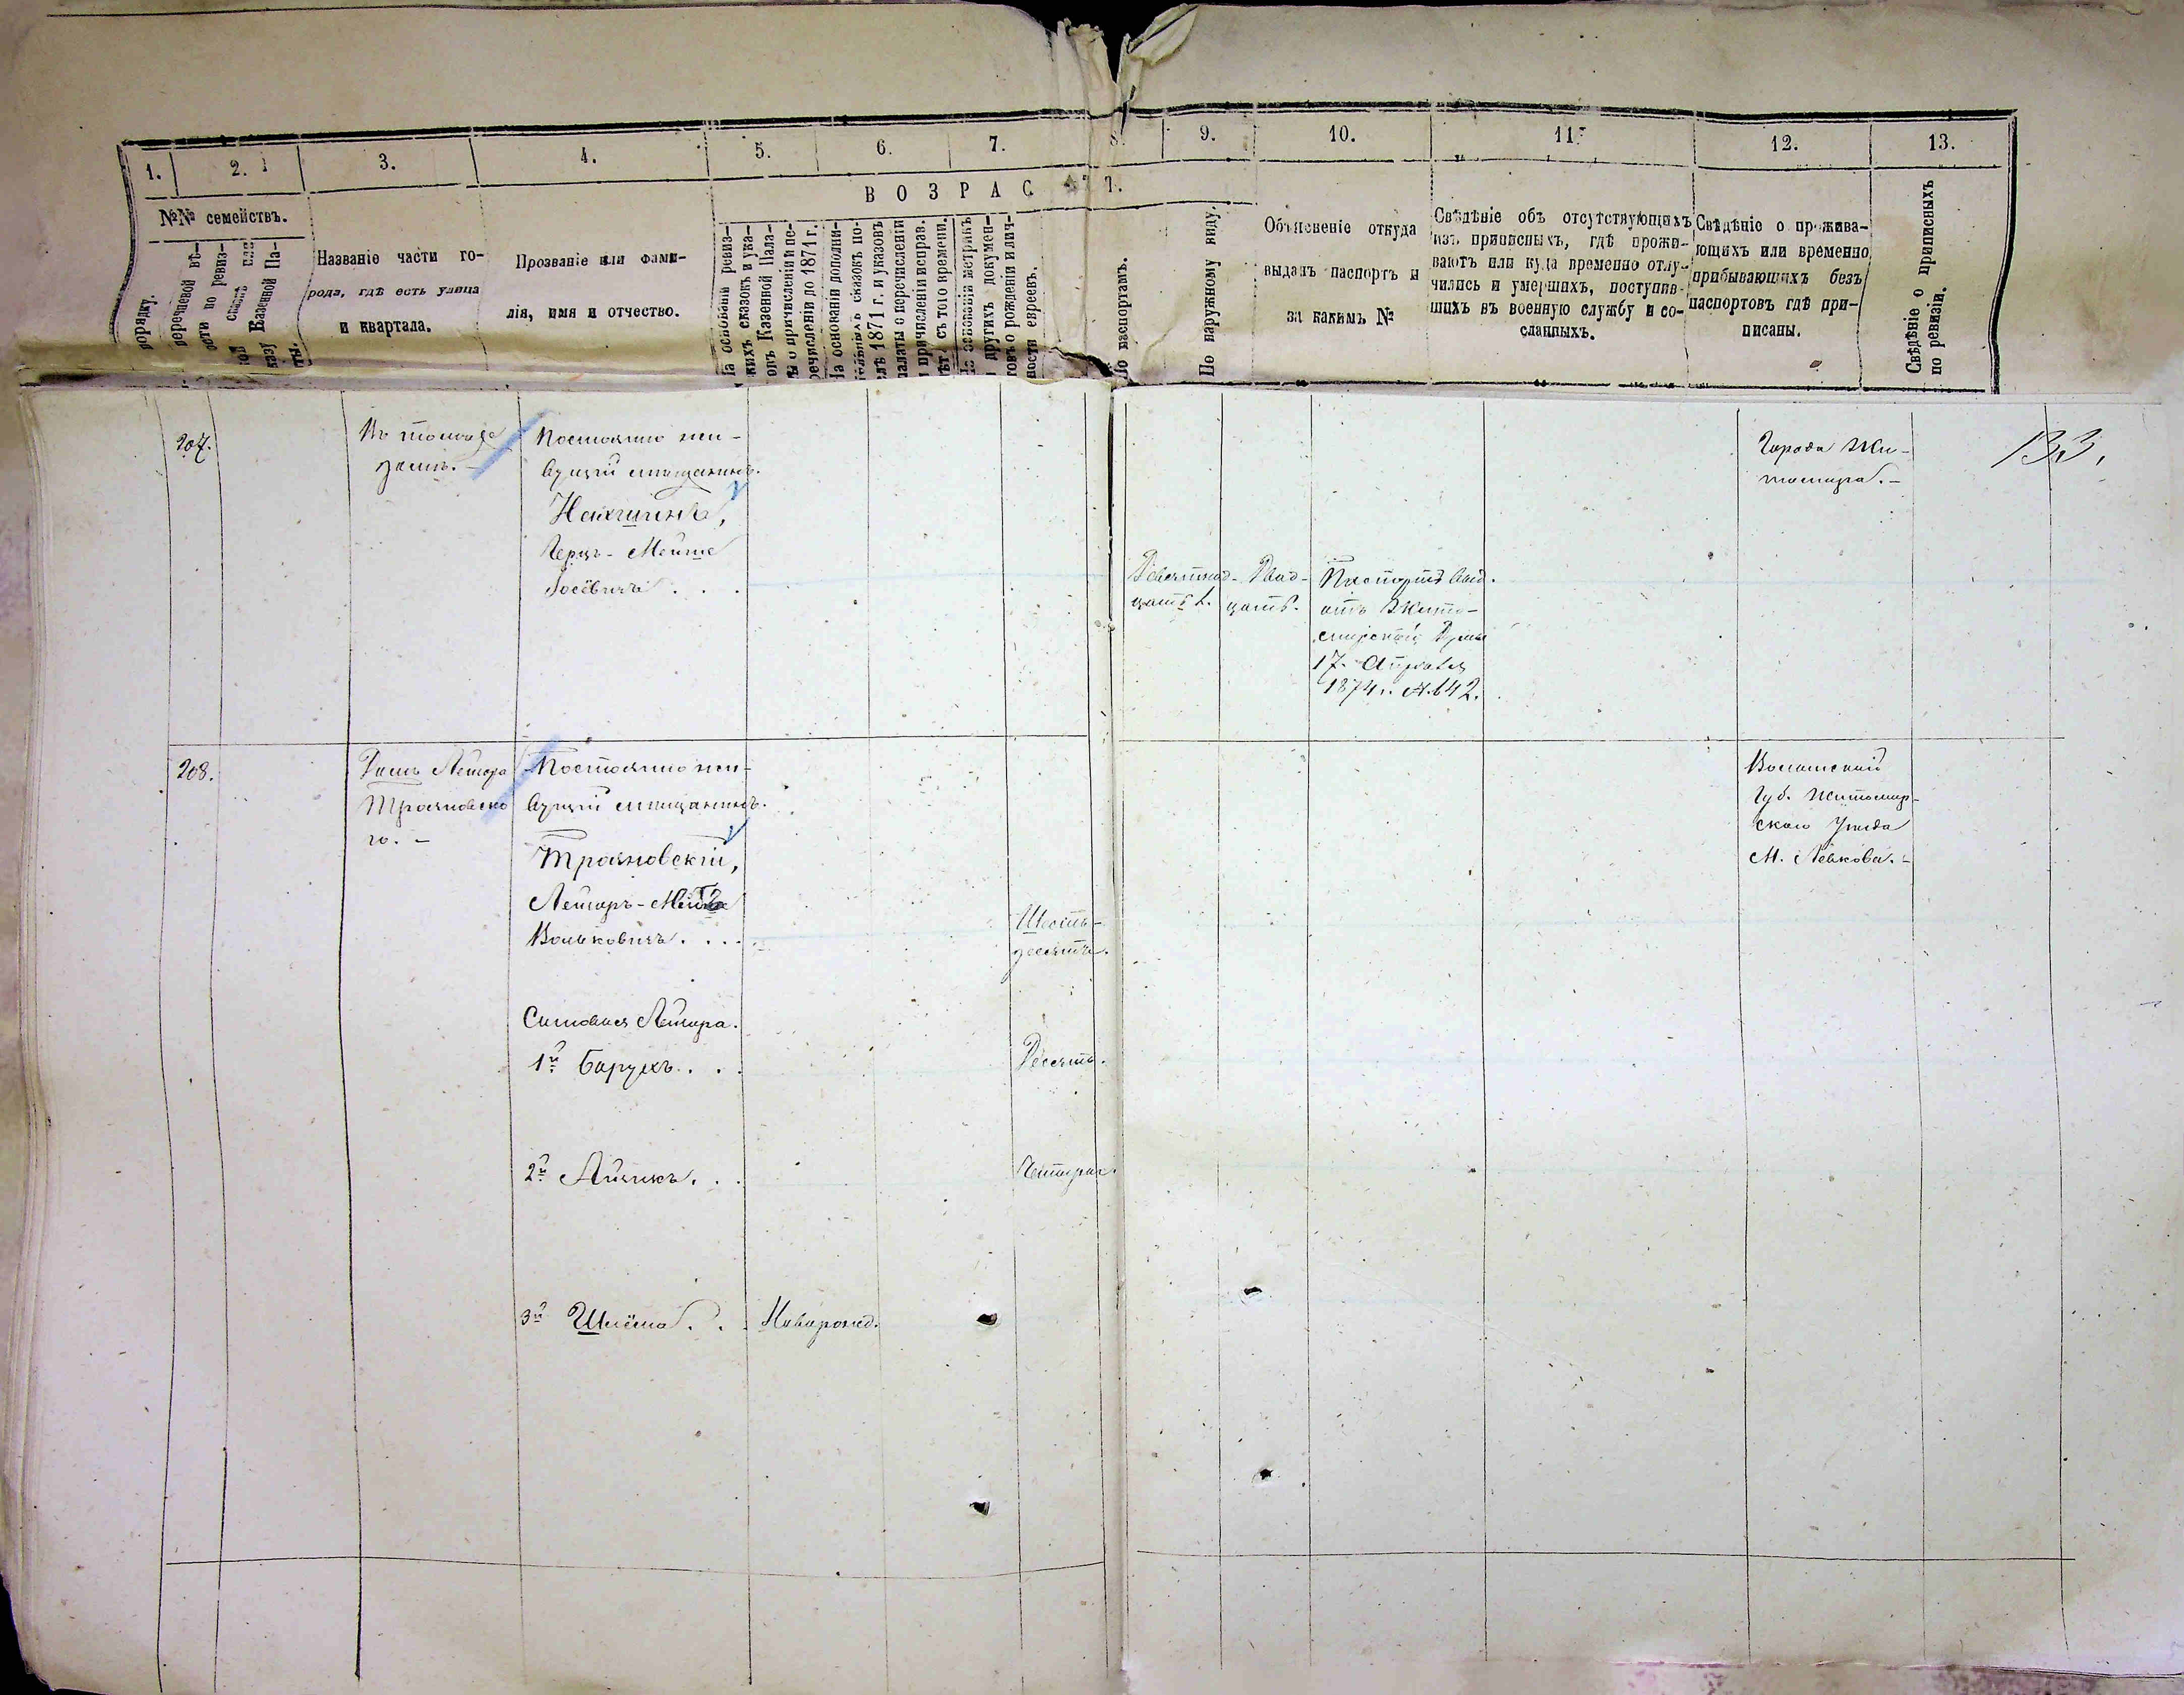 1.
2.
3.
4.
5.
6.
7.
8.
9.
10.
11.
12.
13.
№№ семействъ.
порядку.
перечневой вѣ-
Казенной Па-
Названіе части го-
рода, гдѣ есть улица
и квартала.
Прозваніе или фами-
лія, имя и отчество.
ВОЗРАСТ
На основаніи ревиз-
скихъ сказокъ и ука-
зовъ Казенной Пала-
ты о причисленіи и пе-
речисленіи до 1871 г.
На основаніи дополни-
тельныхъ сказокъ по-
слѣ 1871 г. и указовъ
палаты о перечисленіи
и причисленіи исправ.
лѣт. съ того времени.
На основаніи метрикъ
и другихъ докумен-
товъ о рожденіи и лич-
ности евреевъ.
По паспортамъ.
По наружному виду.
Объясненіе откуда
выданъ паспортъ и
за какимъ №
Свѣдѣніе объ отсутствующихъ
изъ приписныхъ, гдѣ прожи-
ваютъ или куда временно отлу-
чились и умершихъ, поступив-
шихъ въ военную службу и со-
сланныхъ.
Свѣдѣніе о прожива-
ющихъ или временно
прибывающихъ безъ
паспортовъ гдѣ при-
писаны.
Свѣдѣніе о приписныхъ
по ревизіи.
207.
Въ томъ же
домѣ. -
Постоянно жи-
вущій мѣщанинъ.
Нахшинъ,
Герцъ-Мейше
Іосёвичъ . . .
Девятнад-
цать л.
Двад-
цать.
Паспортъ выд.
отъ Жито-
мирской Думы
17. Апрѣля
1874 г. №. 642.
Города Жи-
томира. -
133.
208.
Домъ Лейзора
Трояновско
го. -
Постоянно жи-
вущій мѣщанинъ.
Трояновскій,
Вольковичъ . . .
Шесть-
десятъ.
Волынской
Губ. Житомир-
скаго Уѣзда
М. Левкова. -
Сыновья Лейзора.
1й Барухъ . . .
Десять.
2й Айзикъ . . .
Четыре.
3й Шлёма . . .
Новорожд.